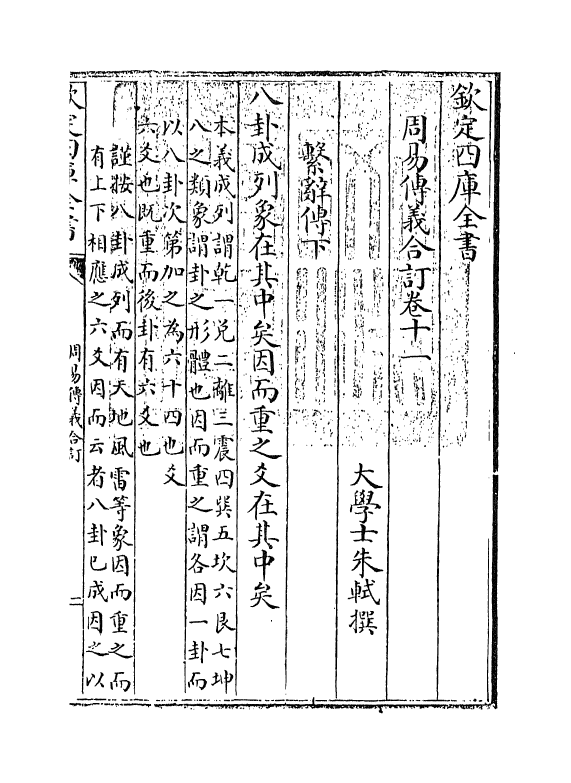 欽定四庫全書
周易傳義合訂卷十一
大學士朱軾撰
繫辭傳下
八卦成列象在其中矣因而重之爻在其中矣
本義成列謂乾一兌二離三震四巽五坎六艮七坤
八之類象謂卦之形體也因而重之謂各因一卦而
以八卦次第加之為六十四也爻
六爻也既重而後卦有六爻也
謹按八卦成列而有天地風雷等象因而重之而
有上下相應之六爻因而云者八卦已成因之以
欽定四庫全書
周易傳義合訂